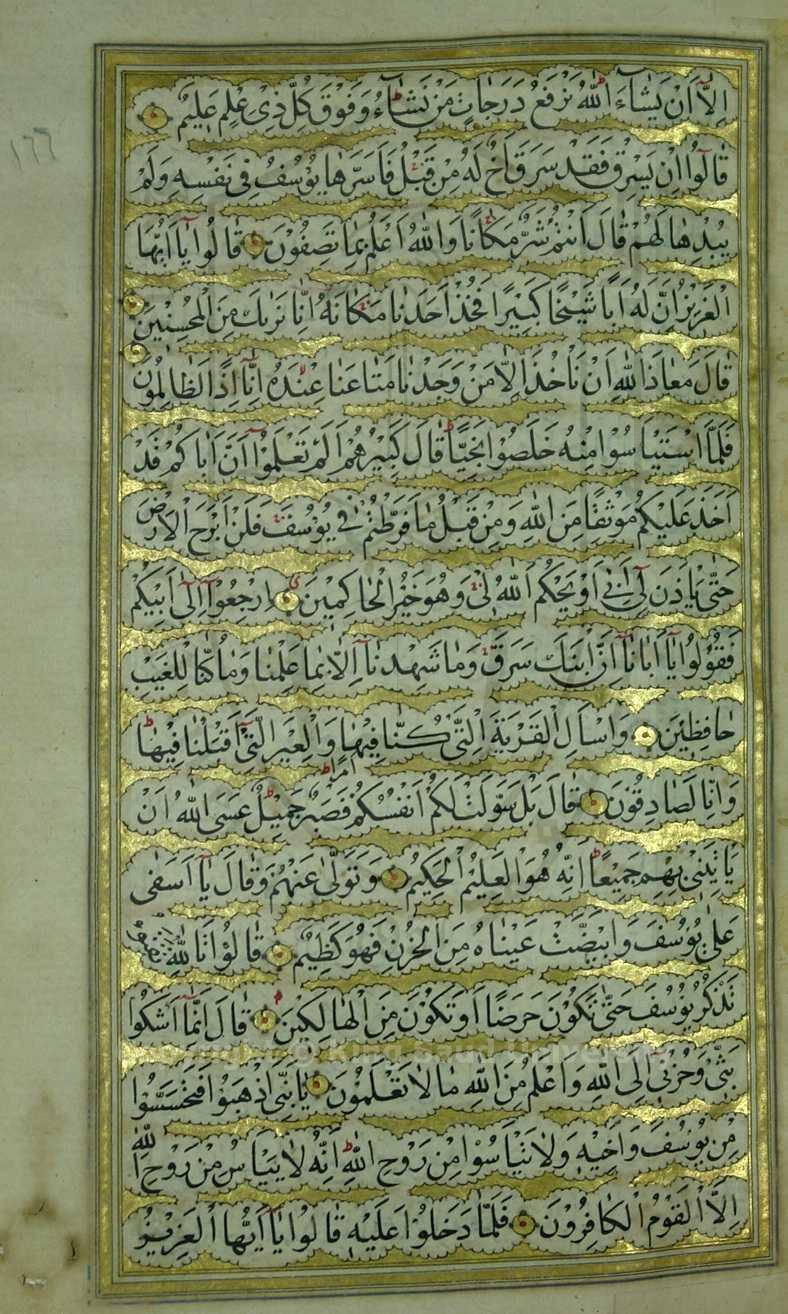 اِلَّا اَنْ يَشَاءَ اللّٰهُ نَرْفَعُ دَرَجَاتٍ مَنْ نَشَاءُ وَفَوْقَ كُلِّ ذِى عِلْمٍ عَلِيمٌ
قَالُوا اِنْ يَسْرِقْ فَقَدْ سَرَقَ اَخٌ لَهُ مِنْ قَبْلُ فَاَسَرَّهَا يُوسُفُ فِى نَفْسِهِ وَلَمْ
يُبْدِهَا لَهُمْ قَالَ اَنْتُمْ شَرٌّ مَكَانًا وَاللّٰهُ اَعْلَمُ بِمَا تَصِفُونَ قَالُوا يَا اَيُّهَا
الْعَزِيزُ اِنَّ لَهُ اَبًا شَيْخًا كَبِيرًا فَخُذْ اَحَدَنَا مَكَانَهُ اِنَّا نَرٰيكَ مِنَ الْمُحْسِنِينَ
قَالَ مَعَاذَ اللّٰهِ اَنْ نَأْخُذَ اِلَّا مَنْ وَجَدْنَا مَتَاعَنَا عِنْدَهُ اِنَّا اِذًا لَظَالِمُونَ
فَلَمَّا اسْتَيْاَسُوا مِنْهُ خَلَصُوا نَجِيًّا قَالَ كَبِيرُهُمْ اَلَمْ تَعْلَمُوا اَنَّ اَبَاكُمْ قَدْ
اَخَذَ عَلَيْكُمْ مَوْثِقًا مِنَ اللّٰهِ وَمِنْ قَبْلُ مَا فَرَّطْتُمْ فِى يُوسُفَ فَلَنْ اَبْرَحَ الْاَرْضَ
حَتّٰى يَاْذَنَ لِى اَبِى اَوْ يَحْكُمَ اللّٰهُ لِى وَهُوَ خَيْرُ الْحَاكِمِينَ اِرْجِعُوا اِلٰى اَبِيكُمْ
فَقُولُوا يَا اَبَانَا اِنَّ ابْنَكَ سَرَقَ وَمَا شَهِدْنَا اِلَّا بِمَا عَلِمْنَا وَمَا كُنَّا لِلْغَيْبِ
حَافِظِينَ وَاسْاَلِ الْقَرْيَةَ الَّتِى كُنَّا فِيهَا وَالْعِيرَ الَّتِى اَقْبَلْنَا فِيهَا
وَاِنَّا لَصَادِقُونَ قَالَ بَلْ سَوَّلَتْ لَكُمْ اَنْفُسُكُمْ اَمْرًا فَصَبْرٌ جَمِيلٌ عَسَى اللّٰهُ اَنْ
يَاْتِيَنِى بِهِمْ جَمِيعًا اِنَّهُ هُوَ الْعَلِيمُ الْحَكِيمُ وَتَوَلّٰى عَنْهُمْ وَقَالَ يَا اَسَفٰى
عَلٰى يُوسُفَ وَابْيَضَّتْ عَيْنَاهُ مِنَ الْحُزْنِ فَهُوَ كَظِيمٌ قَالُوا تَاللّٰهِ
تَذْكُرُ يُوسُفَ حَتّٰى تَكُونَ حَرَضًا اَوْ تَكُونَ مِنَ الْهَالِكِينَ قَالَ اِنَّمَا اَشْكُوا
بَثِّى وَحُزْنِى اِلَى اللّٰهِ وَاَعْلَمُ مِنَ اللّٰهِ مَا لَا تَعْلَمُونَ يَا بَنِىَّ اذْهَبُوا فَتَحَسَّسُوا
مِنْ يُوسُفَ وَاَخِيهِ وَلَا تَيْاَسُوا مِنْ رَوْحِ اللّٰهِ اِنَّهُ لَا يَيْاَسُ مِنْ رَوْحِ اللّٰهِ
اِلَّا الْقَوْمُ الْكَافِرُونَ فَلَمَّا دَخَلُوا عَلَيْهِ قَالُوا يَا اَيُّهَا الْعَزِيزُ
١٦٦